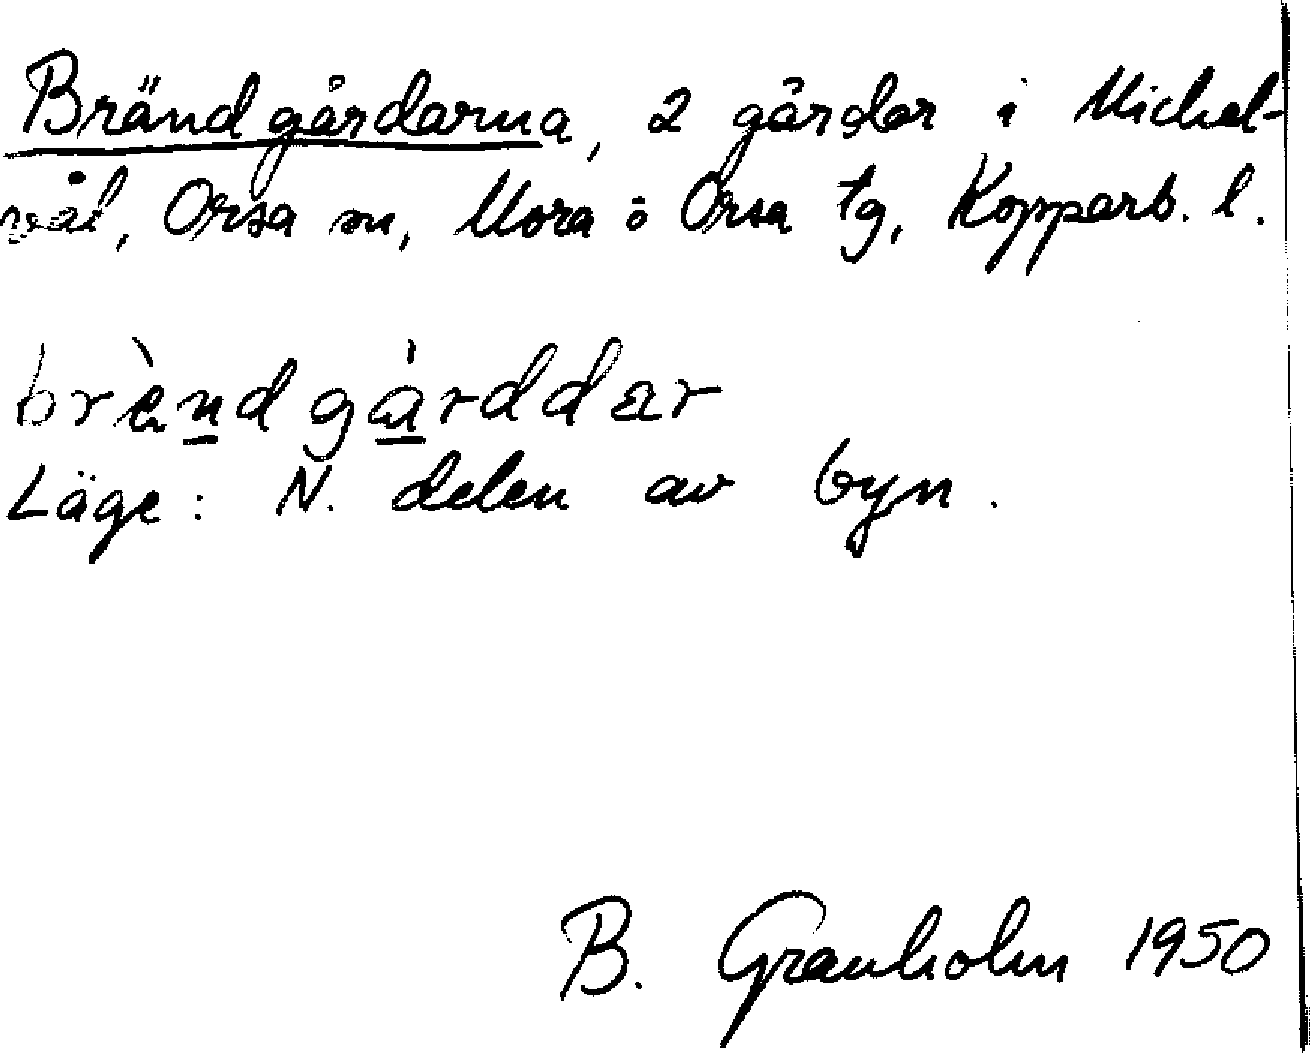 Brändgårdarna, 2 gårdar i Michel-
vål, Orsa sn, Mora o Orsa tg, Kopparb. l.
brèndgàrddar
Läge: N. delen av byn.
B. Granholm 1950